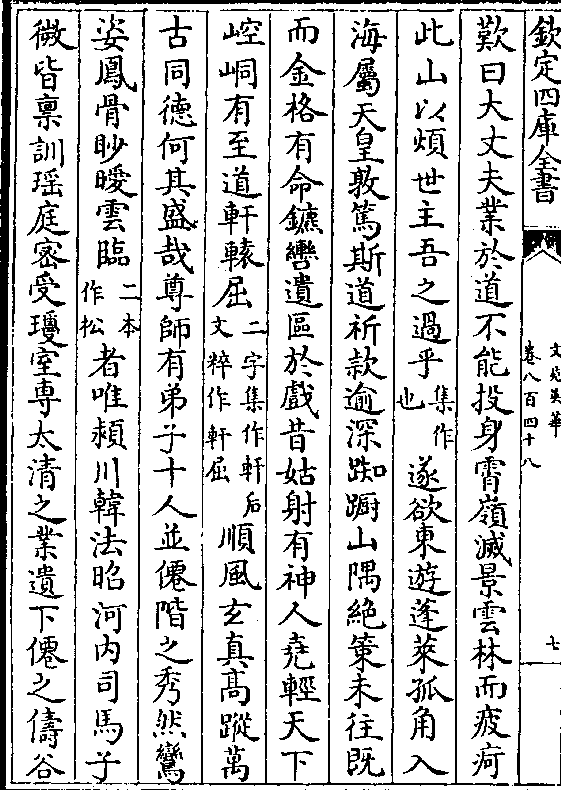 欽定四庫全書
文苑英華
卷八百四十八
七
歎曰大丈夫業於道不能投身霄嶺滅景雲林而疲疴
此山以煩世主吾之過乎集作也遂欲東遊蓬萊孤角入
海屬天皇敦篤斯道祈款逾深踟蹰山隅絶䇿未往既
而金格有命鑣轡遺區於戲昔姑射有神人堯輕天下
崆峒有至道軒轅屈二字集作軒后文粹作軒屈順風𤣥真髙蹤萬
古同徳何其盛哉尊師有弟子十人並僊階之秀然鸞
姿鳳骨眇曖雲臨二本作松者唯頼川韓法昭河内司馬子
微皆禀訓瑶庭宻受瓊室専太清之業遺下僊之儔谷